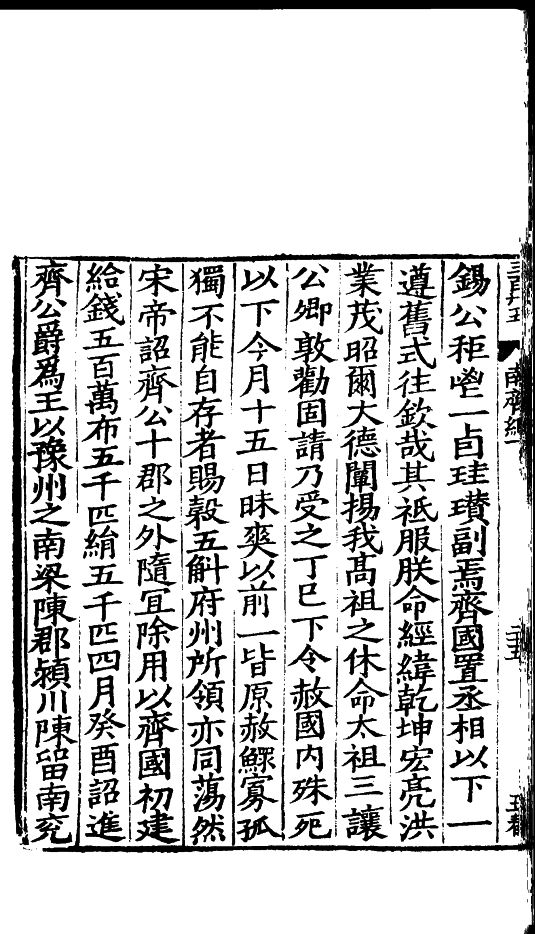 錫公秬鬯一卣珪瓚副焉齊國置丞相以下一
遵舊式往欽哉其祗服朕命經緯乾坤宏亮洪
業茂昭爾大德闡揚我高祖之休命太祖三讓
公卿敦勸固請乃受之丁巳下令赦國内殊死
以下今月十五日昧爽以前一皆原赦鰥寡孤
獨不能自存者賜穀五斛府州所領亦同蕩然
宋帝詔齊公十郡之外隨宜除用以齊國初建
給錢五百萬布五千匹絹五千匹四月癸酉詔進
齊公爵爲王以豫州之南梁陳郡潁川陳留南兖